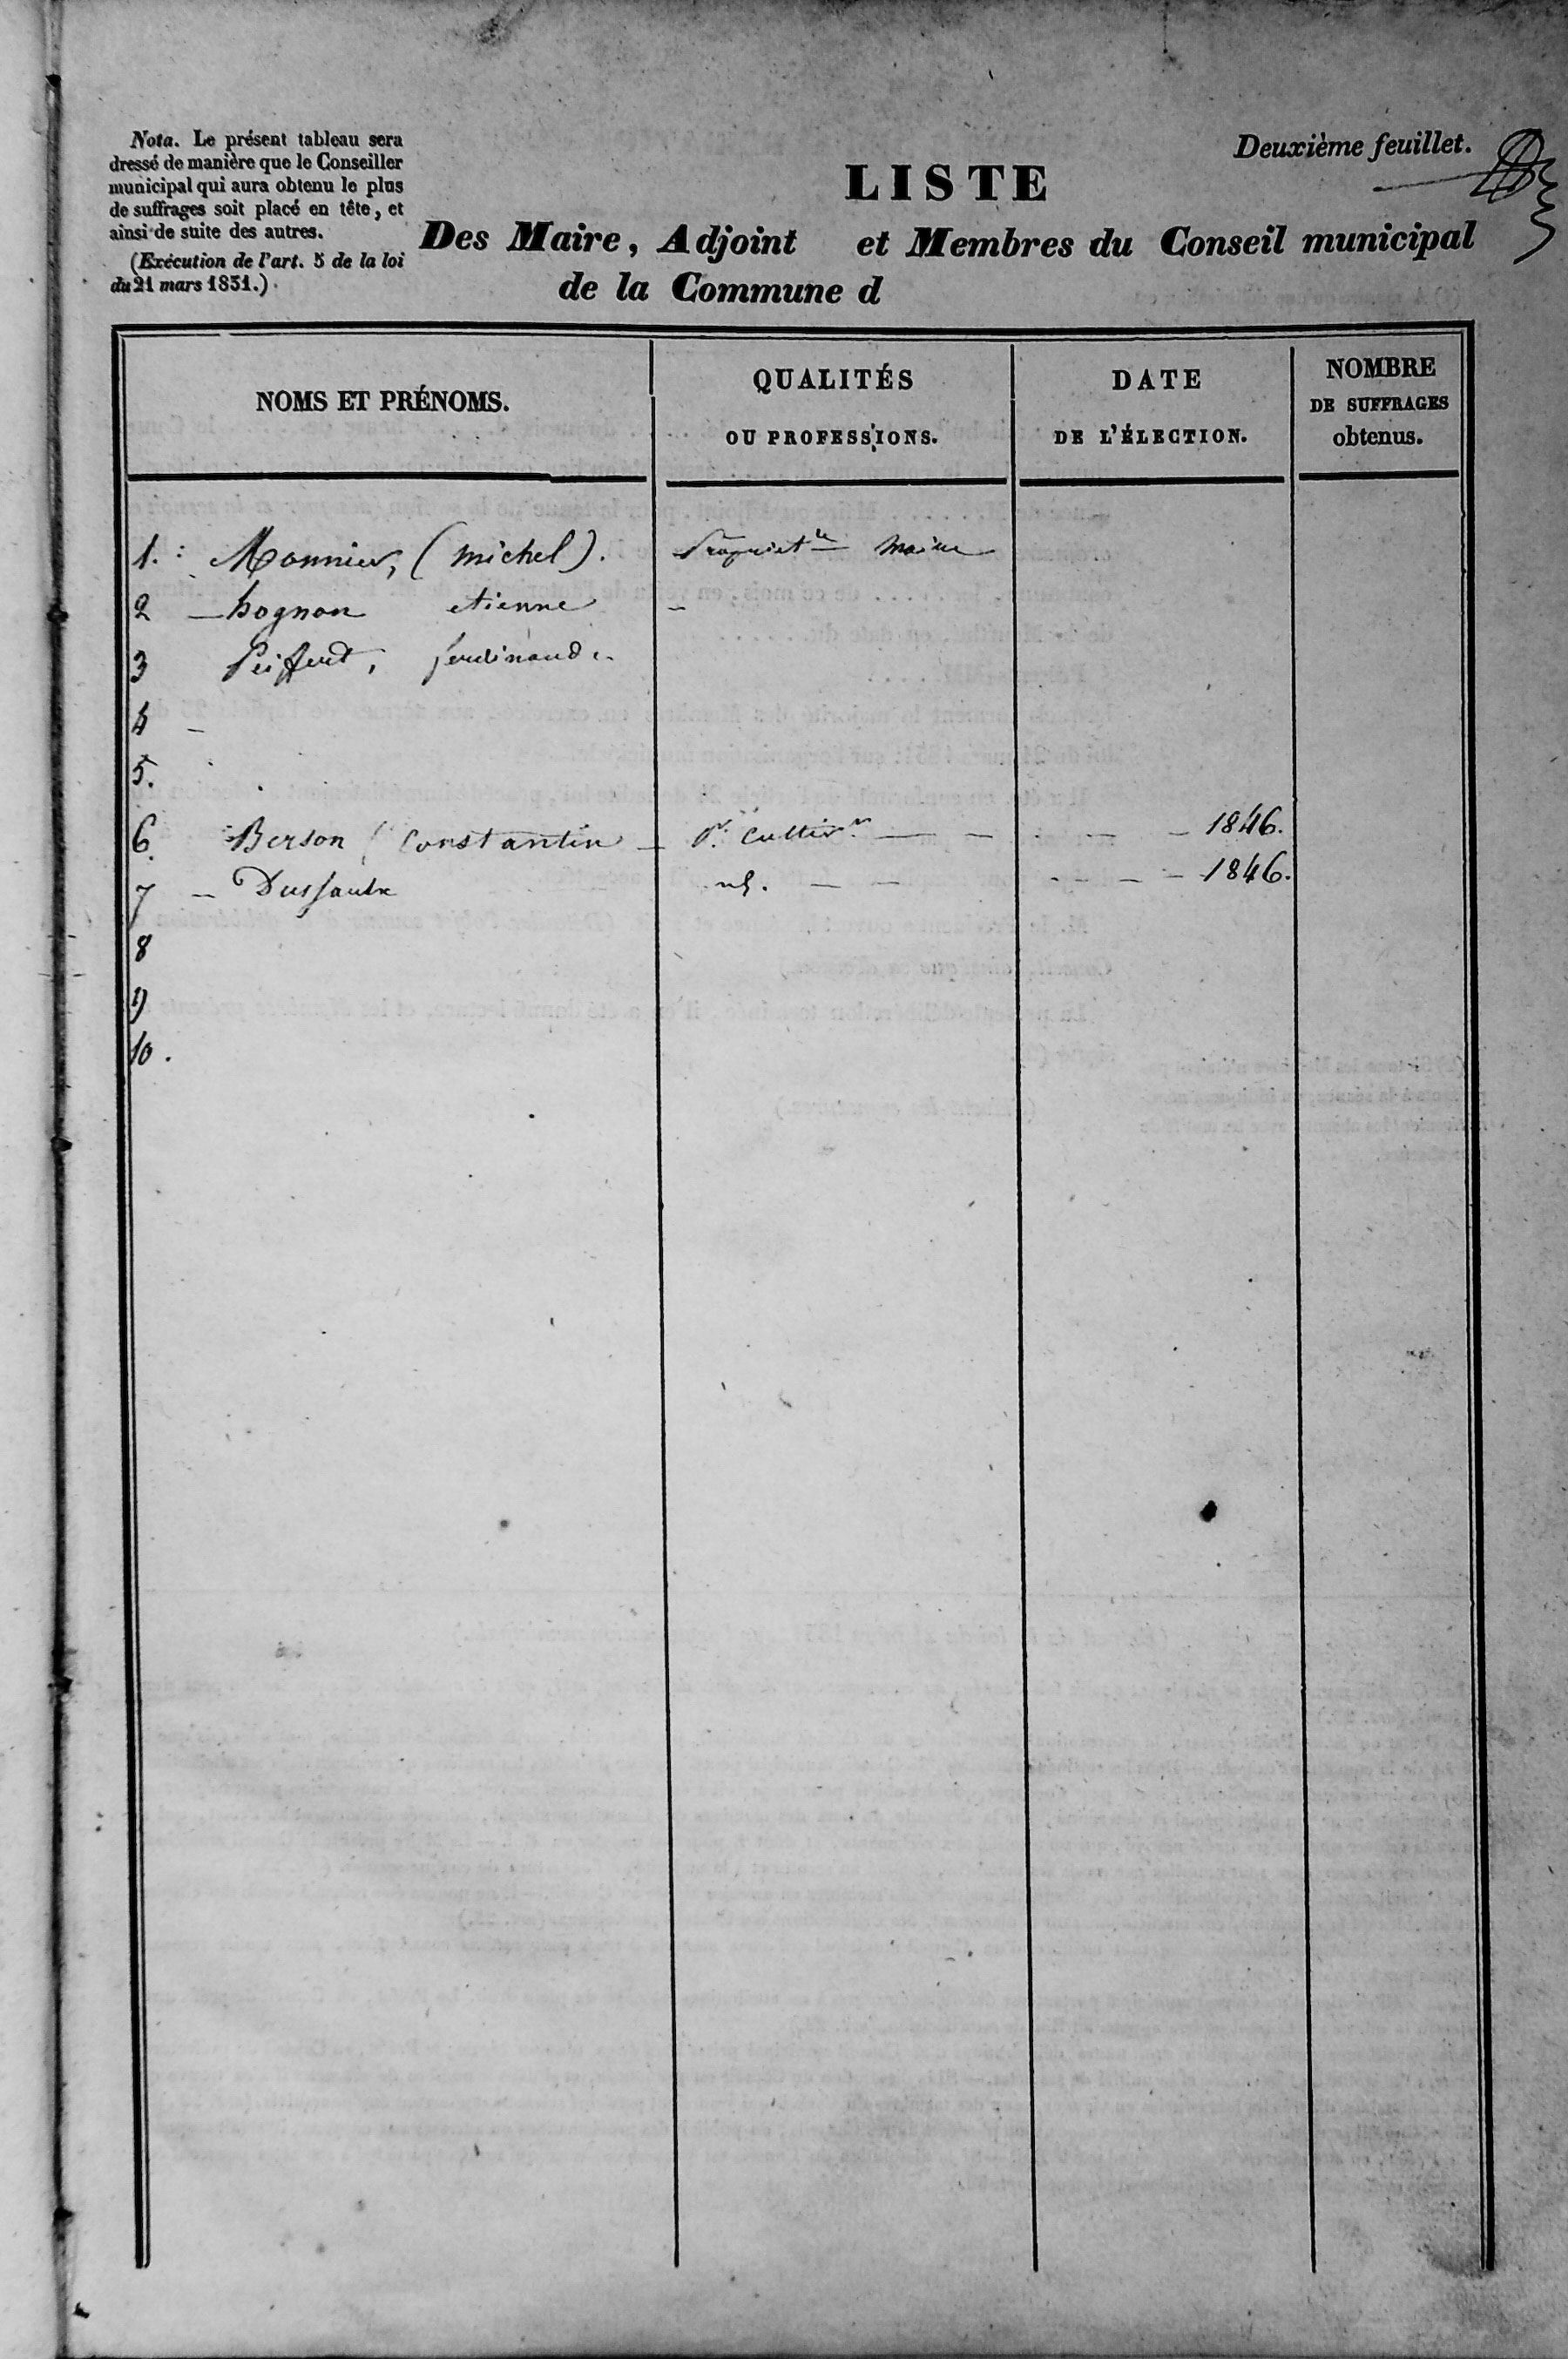 Nota. Le présent tableau sera
dressé de manière que le Conseiller
municipal qui aura obtenu le plus
de suffrages soit placé en tête, et
ainsi de suite des autres.
(Exécution de l'art. 5 de la loi
du 21 mars 1831.)
Deuxième feuillet.
LISTE
Des Maire, Adjoint et Membres du Conseil municipal
de la Commune d
NOMS ET PRÉNOMS.
QUALITÉS
OU PROFESSIONS.
DATE
DE L'ÉLECTION.
NOMBRE
DE SUFFRAGES
obtenus.
1. Monnier, (michel). Propriét.re Maire
2 — hognon etienne
3 Peiffert, ferdinand.
4 —
5.
6. Berson (Constantin — Pr. Cultivr — — — — 1846.
7 — Dussaulx — — — — — 1846.
8
9
10.